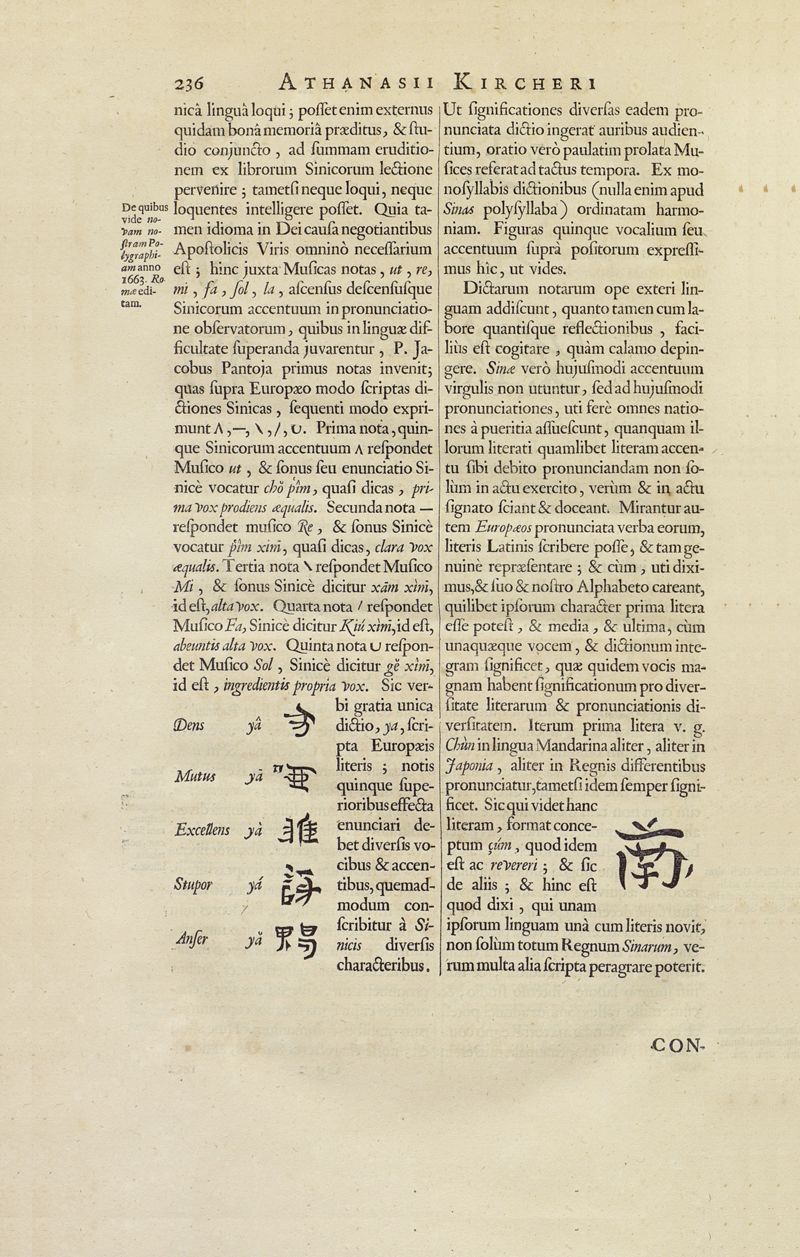 236 ATHANASII KIRCHERI
nicâ linguâ loqui ; poſſet enim externus
quidam bonâ memoriâ præditus, & ſtu-
dio conjuncto , ad ſummam eruditio-
nem ex librorum Sinicorum lectione
pervenire ; tametſi neque loqui, neque
loquentes intelligere poſſet. Quia ta-
men idioma in Dei cauſa negotiantibus
Apoſtolicis Viris omninò neceſſarium
eſt ; hinc juxta Muſicas notas , ut , re,
mi , fa , ſol , la , aſcenſus deſcenſuſque
Sinicorum accentuum in pronunciatio-
ne obſervatorum, quibus in linguæ dif-
ficultate ſuperanda juvarentur , P. Ja-
cobus Pantoja primus notas invenit;
quas ſupra Europæo modo ſcriptas di-
ctiones Sinicas , ſequenti modo expri-
munt Λ ,—, \ , / , ∪. Prima nota , quin-
que Sinicorum accentuum Λ reſpondet
Muſico ut , & ſonus ſeu enunciatio Si-
nicè vocatur chŏ pîm, quaſi dicas , pri-
ma vox prodiens æqualis. Secunda nota —
reſpondet muſico Re , & ſonus Sinicè
vocatur pîm xim, quaſi dicas, clara vox
æqualis. Tertia nota \ reſpondet Muſico
Mi , & ſonus Sinicè dicitur xàm xim,
id eſt, alta vox. Quarta nota / reſpondet
Muſico Fa, Sinicè dicitur Kiú xim, id eſt,
abeuntis alta vox. Quinta nota ∪ reſpon-
det Muſico Sol , Sinicè dicitur gĕ xim,
id eſt , ingredientis propria vox. Sic ver-
bi gratia unica
dictio, ya, ſcri-
pta Europæis
literis ; notis
quinque ſupe-
rioribus effecta
enunciari de-
bet diverſis vo-
cibus & accen-
tibus, quemad-
modum con-
ſcribitur à Si-
nicis diverſis
characteribus.
De quibus
vide no-
vam no-
ſtram Po-
lygraphi-
am anno
1663. Ro-
mæ edi-
tam.
Dens yâ 牙
Mutus yā
Excellens yà 雅
Stupor yá 訝
Anſer yă
Ut ſignificationes diverſas eadem pro-
nunciata dictio ingerat auribus audien-
tium, oratio verò paulatim prolata Mu-
ſices referat ad tactus tempora. Ex mo-
noſyllabis dictionibus (nulla enim apud
Sinas polyſyllaba) ordinatam harmo-
niam. Figuras quinque vocalium ſeu
accentuum ſuprà poſitorum expreſſi-
mus hîc , ut vides.
Dictarum notarum ope exteri lin-
guam addiſcunt, quanto tamen cum la-
bore quantiſque reflectionibus , faci-
liùs eſt cogitare , quàm calamo depin-
gere. Sinæ verò hujuſmodi accentuum
virgulis non utuntur, ſed ad hujuſmodi
pronunciationes, uti ferè omnes natio-
nes à pueritia aſſueſcunt, quanquam il-
lorum literati quamlibet literam accen-
tu ſibi debito pronunciandam non ſo-
lùm in actu exercito, verùm & in actu
ſignato ſciant & doceant. Mirantur au-
tem Europæos pronunciata verba eorum,
literis Latinis ſcribere poſſe, & tam ge-
nuinè repræſentare ; & cùm , uti dixi-
mus, & ſuo & noſtro Alphabeto careant,
quilibet ipſorum character prima litera
eſſe poteſt , & media , & ultima, cùm
unaquæque vocem , & dictionum inte-
gram ſignificet, quæ quidem vocis ma-
gnam habent ſignificationum pro diver-
ſitate literarum & pronunciationis di-
verſitatem. Iterum prima litera v. g.
Chùn in lingua Mandarina aliter, aliter in
Japonia , aliter in Regnis differentibus
pronunciatur, tametſi idem ſemper ſigni-
ficet. Sic qui videt hanc
literam, format conce-
ptum çúm , quod idem
eſt ac revereri ; & ſic
de aliis ; & hinc eſt
quod dixi , qui unam
ipſorum linguam unà cum literis novit,
non ſolùm totum Regnum Sinarum, ve-
rum multa alia ſcripta peragrare poterit.
CON-